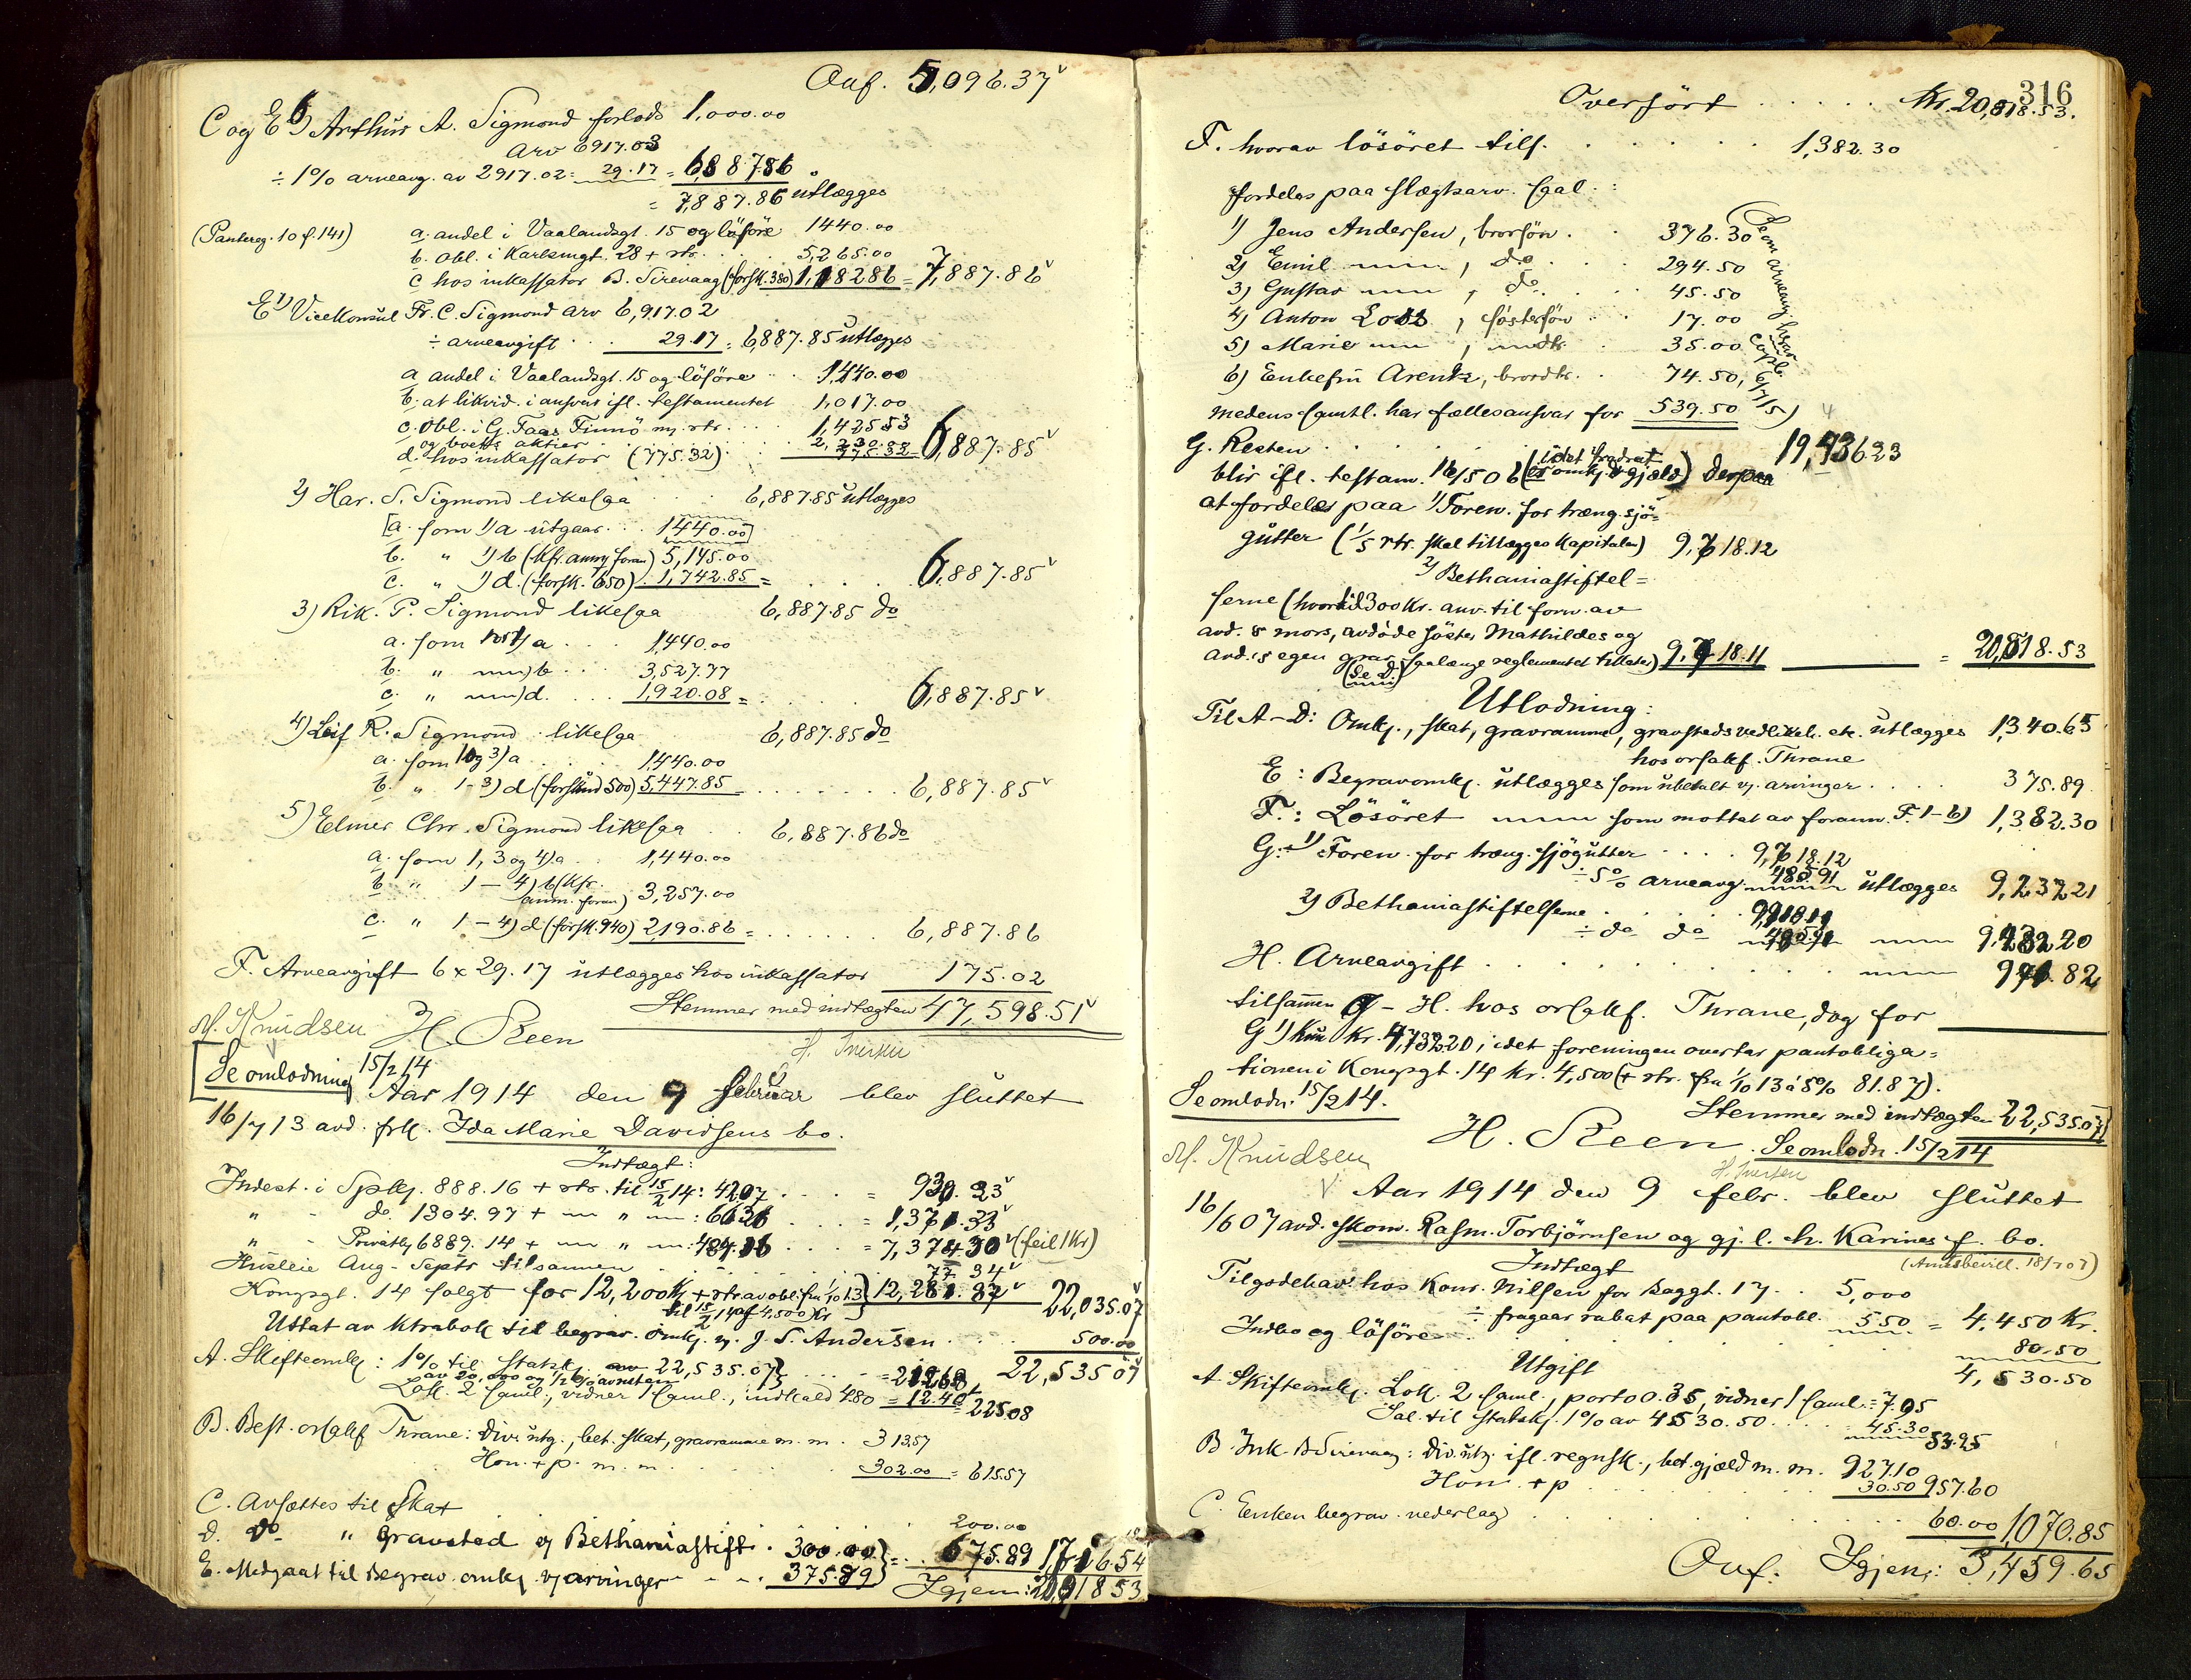 Ovf. 5,096.37
C og E 6) Arthur A. Sigmond forlods 1,000.00
Arv 6917.03
÷ 1% arveavg. av 2917.02 = 29.17 = 6,887.86
= 7,887.86 utlægges
(Pantereg. 10 f. 141)
a. andel i Vaalandsgt. 15 og løsøre 1440.00
b. obl. i Karlsmgt. 28 + rtr. 5,265.00
c hos inkassator B. Sirevaag (forsk. 380) 1,182.86 = 7,887.86
E 1) Vicekonsul Fr. C. Sigmond arv 6,917.02
÷ arveavgift 29.17 = 6,887.85 utlægges
a andel i Vaalandsgt. 15 og løsøre 1,440.00
b. at likvid. i ansvar ifl. testamentet 1,017.00
c. obl. i G. Faas Finnö m. rtr. 1,425.53
og boets aktier 2,230.00
d. hos inkassator (775.32) 775.32 6,887.85
2) Har. S. Sigmond likesaa 6,887.85 utlægges
[a. som 1) a utgaar 1440.00]
b. " 1) b (kfr. anm. foran) 5,145.00
c. " 1) d. (forsk. 650) 1,742.85 = 6,887.85
3) Rik. P. Sigmond likesaa 6,887.85 do
a. som 1) a 1,440.00
b. " b 3,527.77
c. " d. 1,920.08 = 6,887.85
4) Leif R. Sigmond likesaa 6,887.85 do
a. som 1 og 3) a 1,440.00
b. " 1-3) d (forskud 500) 5,447.85 6,887.85
5) Elmer Chr. Sigmond likesaa 6,887.86 do
a. som 1, 3 og 4) a 1,440.00
b " 1-4) b (Kfr.
anm. foran) 3,257.00
c. " 1-4) d (forsk. 940) 2190.86 = 6,887.86
F. Arveavgift 6 x 29.17 utlægges hos inkassator 175.02
Stemmer med indtægten 47,598.51
M. Knudsen H. Steen H. Iversen
Se omlodning 15/2 14
Aar 1914 den 9 februar blev sluttet
16/7 13 avd. frk. Ida Marie Davidsens bo.
Indtægt:
Indest. i Spbk. 888.16 + rtr. til 15/2 14: 42.07 = 930.23
" - do. 1304.97 + " : 66.26 = 1,371.23
" - Privatbk 6889.14 + " : 484.16 = 7,374.30 (feil 1 Kr)
Husleie Aug - Septr tilsammen 77.34
Kongsgt. 14 solgt for 12,200 Kr + rtr av obl. fra 1/10 13 12,281.87 22,035.07
til 15/2 14 af 4,500 Kr
Uttat av Ktrabok til begrav. omk. v. J. S. Andersen 500.00
22,535.07
A. Skifteomk: 1% til statsk. av 22,535.07
av 20,000 og 1/2% av resten = 212.68
Lok. 2 saml., vidner 1 saml., indkald 4.80 = 12.40 = 225.08
B. Best. orsakf Thrane: Div. utg., bet. skat, gravramme m. m. 313.57
Hon. + p. m. m. 302.00 = 615.57
C. Avsættes til Skat 200.00
D. do " Gravsted v Bethaniastift. 300.00
E. Medgaat til Begrav. omk v arvinger 375.89 = 675.89 1,716.54
Igjen: 20,818.53
316
Overført Kr. 20,818.53.
F. hvorav løsøret tils. 1,382.30
fordeles paa slægtsarv. sgal.:
1) Jens Andersen, brorsøn 376.30
2) Emil , do 294.50
3) Gustav , do. 45.50
4) Anton , søstersøn 17.00
5) Marie , 35.00
6) Enkefru Arentz, brordtr. 74.50,
medens samtl. har fællesansvar for 539.50
G. Resten 19,436.23
blir ifl. testam. 16/5 06 (idet fradrat er omk. & gjæld) derpaa
at fordeles paa 1) Foren. for træng. sjø-
gutter (1/5 rtr. skal tillægges Kapitalen) 9,718.12
2) Bethaniastiftel=
serne (hvortil 300 Kr. anv. til forn. av
avd. s mors, avdøde søster Mathildes og
avd. s egen grav saalænge reglementet tillater) 9,718.11 = 20,818.53
(se D.)
Utlodning:
Til A-D: Omk., skat, gravramme, gravstedsvedlikeh. etc. utlægges 1,340.65
hos orsakf. Thrane
E: Begravomk. utlægges som ubetalt v. arvinger 375.89
F.: Løsøret som mottat av foranm. F. 1-6) 1,382.30
G: 1) Foren. for træng. sjøgutter 9,718.12
÷ 5% arveavg. 485.91 utlægges 9,232.21
2) Bethaniastiftelserne 9,718.11
÷ do do 485.91 9,232.20
H. Arveavgift 971.82
tilsammen G - H. hos orsakf. Thrane, dog for
G 1) kun Kr. 4,732.20, idet foreningen overtar pantobliga=
tionen i Kongsgt. 14 Kr. 4,500 (+ rtr. fra 1/10 13 á 5% 81.87).
Se omlodn. 15/2 14.
Stemmer med indtægten 22,535.07
M. Knudsen H. Steen Se omlodn. 15/2 14
H. Iversen
Aar 1914 den 9 febr. blev sluttet
16/6 07 avd. skom. Rasm. Torbjørnsen og gj. l. h. Karines f. bo.
Indtægt (Amtsbevill. 18/7 07)
Tilgodehav. hos Konr. Nilsen for Baggt. 17 5,000
÷ fragaar rabat paa pantobl. 550 = 4,450 Kr.
Indbo og løsøre 80.50
Utgift 4,530.50
A. Skifteomk. Lok. 2 saml., porto 0.35, vidner 1 saml. = 7.95
Sal. til Statsk. 1% av 4530.50 45.30 53.25
B. Ink. B Sirevaag: Div. utg. ifl. regnsk., bet. gjæld m. m. 927.10
Hon. + p 30.50 957.60
C. Enken begrav. nederlag 60.00 1,070.85
Ovf. Igjen: 3,459.65